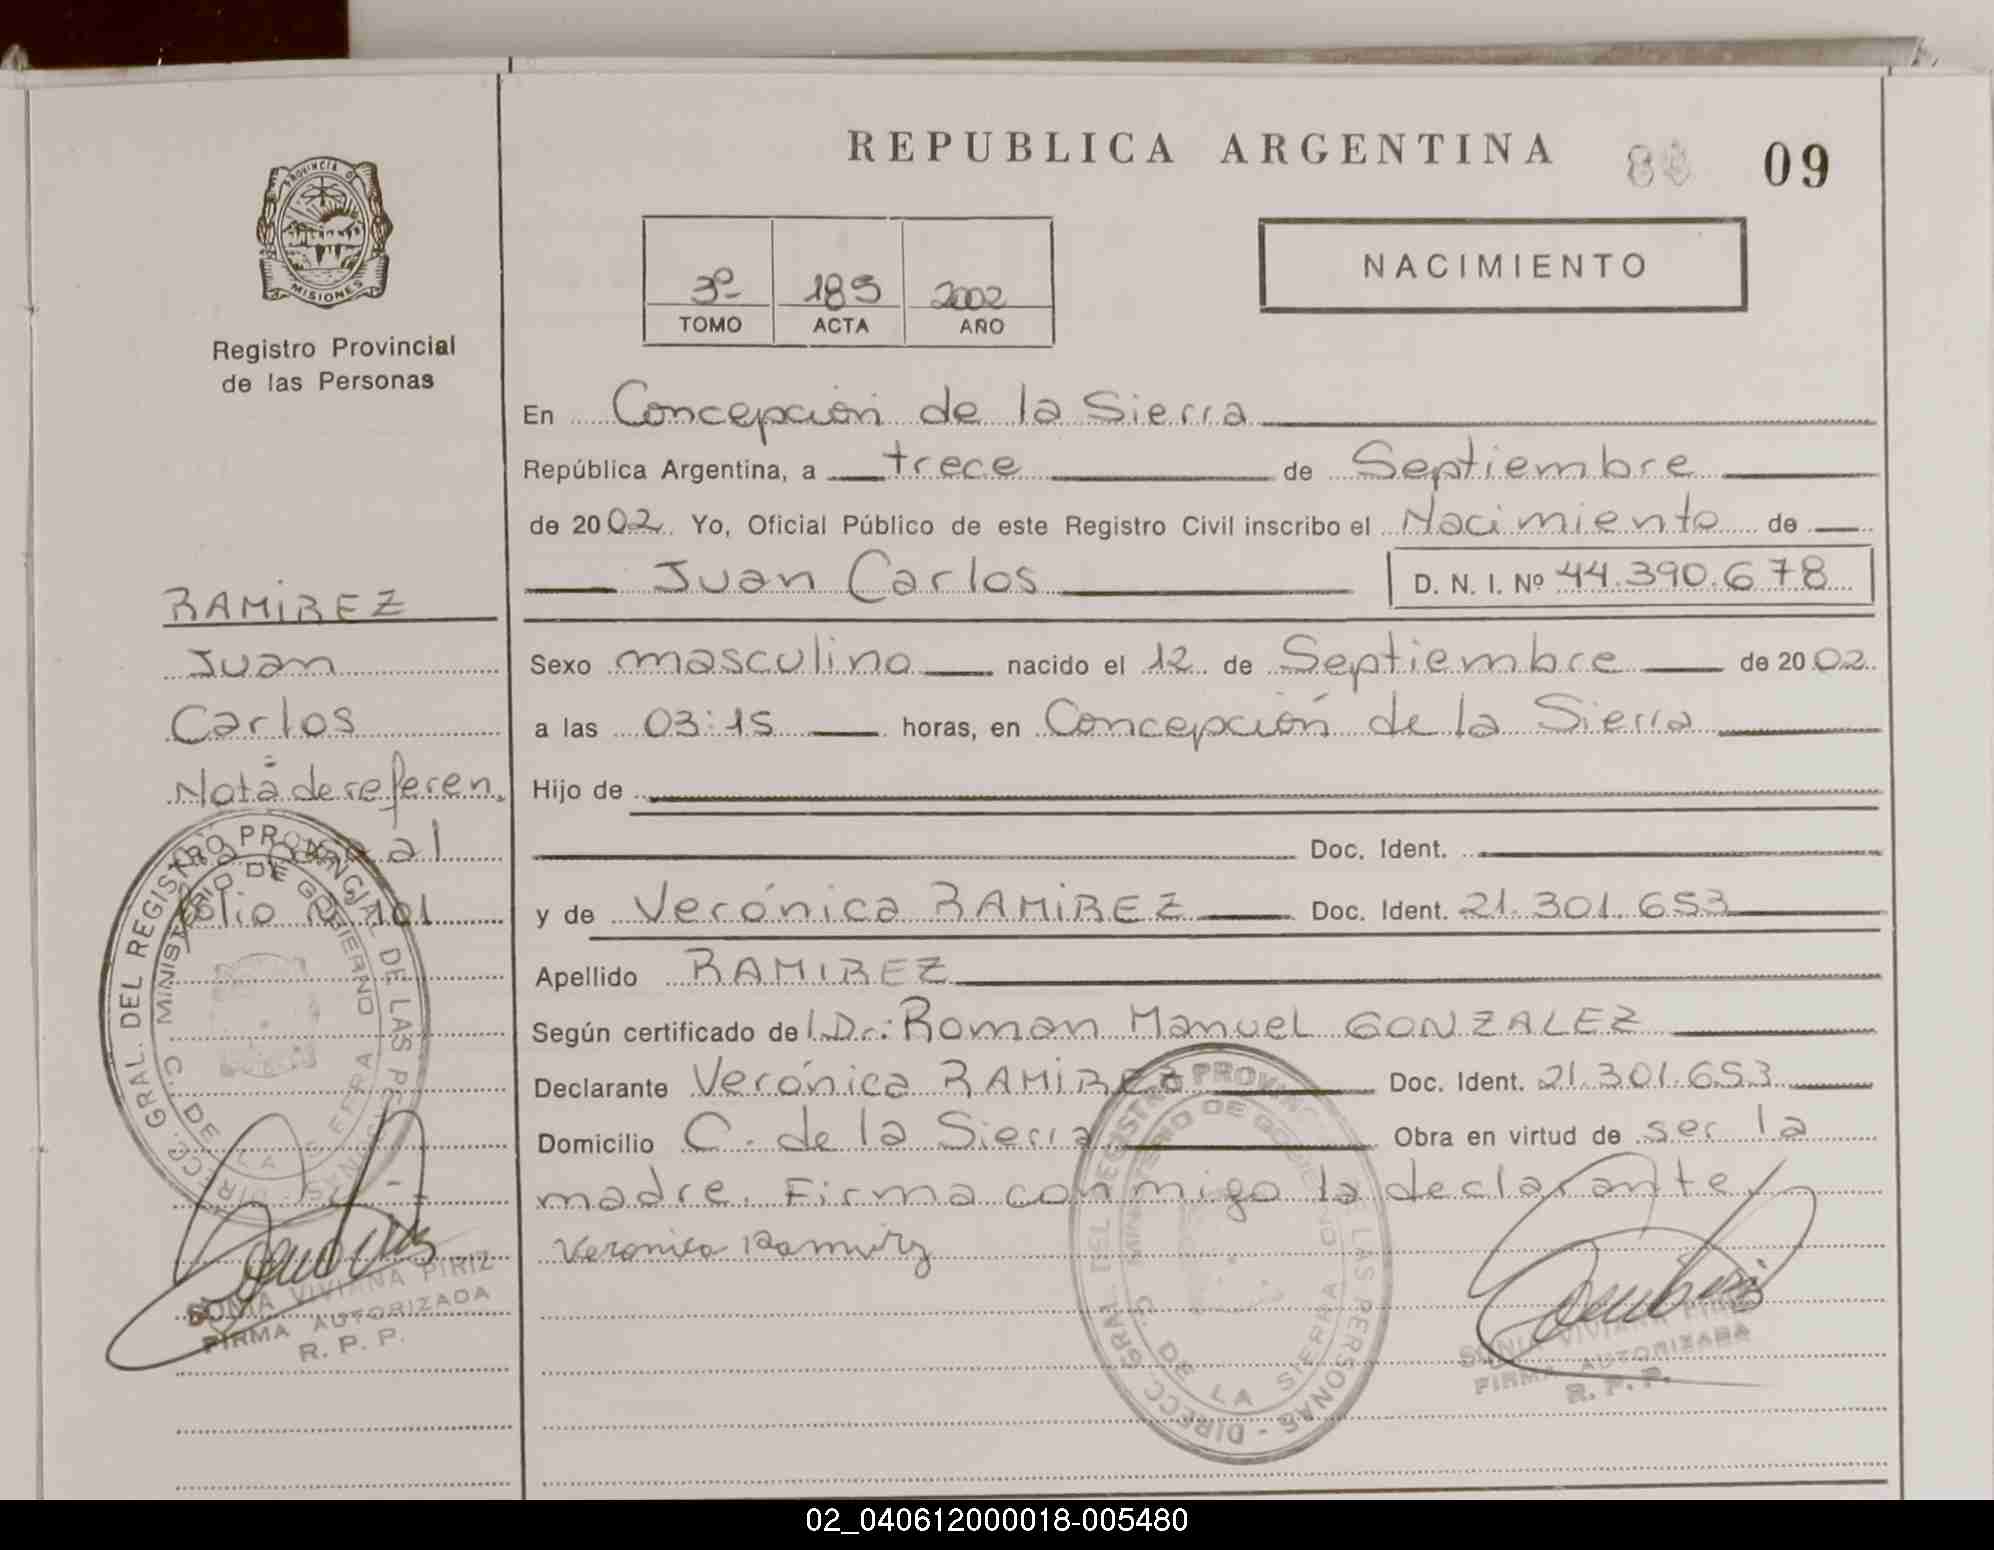 REPUBLICA ARGENTINA 09
PROVINCIA DE
MISIONES
Registro Provincial
de las Personas
NACIMIENTO
3º 189 2002
TOMO ACTA AÑO
En Concepción de la Sierra
República Argentina, a trece de Septiembre
de 2002. Yo, Oficial Público de este Registro Civil inscribo el Nacimiento de
Juan Carlos D. N. I. Nº 44.390.678
Sexo masculino nacido el 12 de Septiembre de 2002
a las 03:15 horas, en Concepción de la Sierra
Hijo de
Doc. Ident.
y de Verónica RAMIREZ Doc. Ident. 21.301.653
Apellido RAMIREZ
Según certificado del Dr: Roman Manuel GONZALEZ
Declarante Verónica RAMIREZ Doc. Ident. 21.301.653
Domicilio C. de la Sierra Obra en virtud de ser la
madre. Firma conmigo la declarante
Veronica Ramirez
RAMIREZ
Juan
Carlos
Nota de referen.
al
folio Nº 101
DIRECC. GRAL. DEL REGISTRO PROVINCIAL DE LAS PERSONAS
MINISTERIO DE GOBIERNO
C. DE LA SIERRA
SONIA VIVIANA PIRIZ
FIRMA AUTORIZADA
R. P. P.
DIRECC. GRAL. DEL REGISTRO PROVINCIAL DE LAS PERSONAS
MINISTERIO DE GOBIERNO
C. DE LA SIERRA
SONIA VIVIANA PIRIZ
FIRMA AUTORIZADA
R. P. P.
02_040612000018-005480